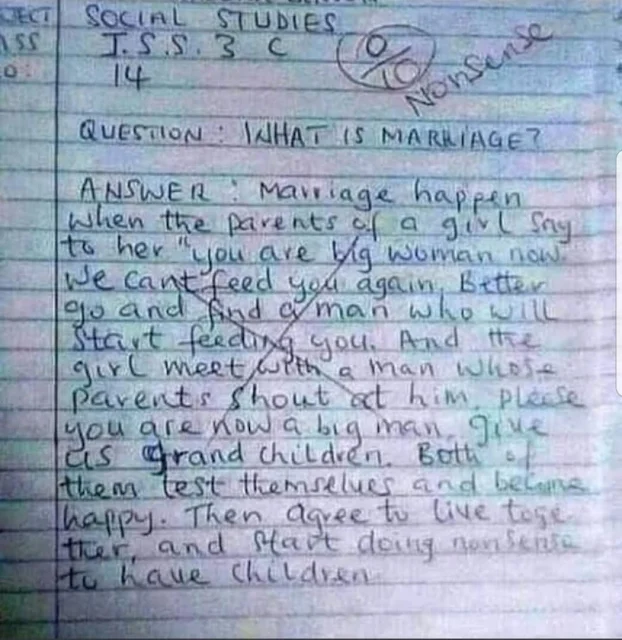 JECT SOCIAL STUDIES
ASS J.S.S. 3 C
O: 14
0/10
Nonsense
QUESTION: WHAT IS MARRIAGE?
ANSWER: Marriage happen
when the parents of a girl Say
to her "you are big woman now.
We cant feed you again. Better
go and find a man who will
Start feeding you. And the
girl meet with a man whose
parents shout at him, please
you are now a big man, give
us grand children. Both of
them test themselves and become
happy. Then agree to live toge
ther, and start doing nonsense
to have children.